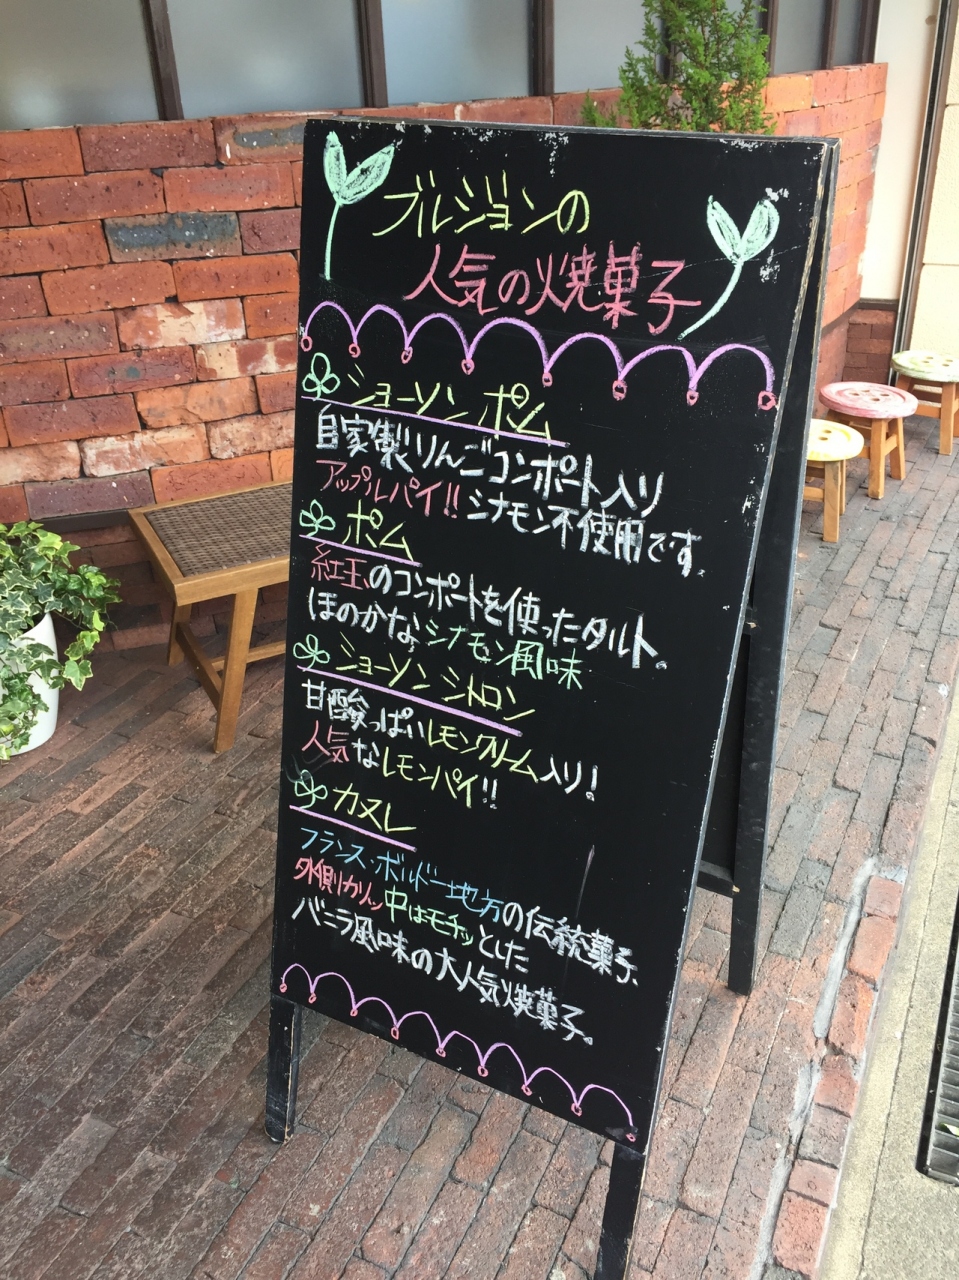 ブルジョンの
人気の焼菓子
ショーソン ポム
自家製りんごコンポート入り
アップルパイ!! シナモン不使用です。
ポム
紅玉のコンポートを使ったタルト。
ほのかなシナモン風味
ショーソン シトロン
甘酸っぱいレモンクリーム入り!
人気なレモンパイ!!
カヌレ
フランス・ボルドー地方の伝統菓子、
外側カリッ中はモチッとした
バニラ風味の大人気焼菓子。